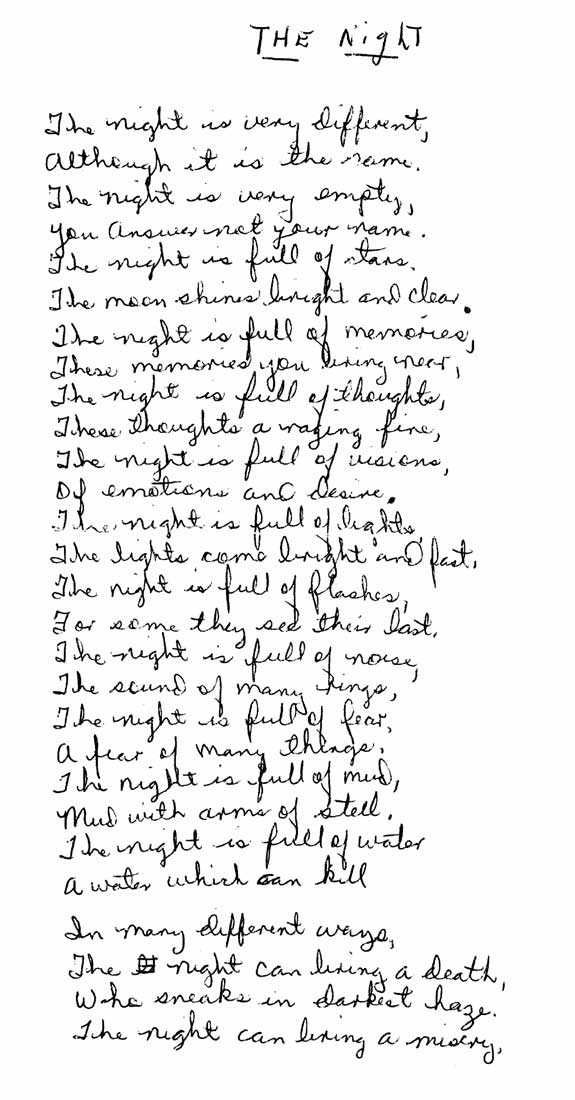 THE Night
The night is very different,
Although it is the same.
The night is very empty,
you answer not your name.
The night is full of stars.
The moon shines bright and clear.
The night is full of memories,
These memories you bring near,
The night is full of thoughts,
These thoughts a raging fire,
The night is full of visions,
Of emotions and desire.
The night is full of lights,
The lights come bright and fast,
The night is full of flashes,
For some they see their last.
The night is full of noise,
The sound of many rings,
The night is full of fear,
A fear of many things.
The night is full of mud,
Mud with arms of stell.
The night is full of water
A water which can kill
In many different ways,
The night can bring a death,
Who sneaks in darkest haze.
The night can bring a misery,